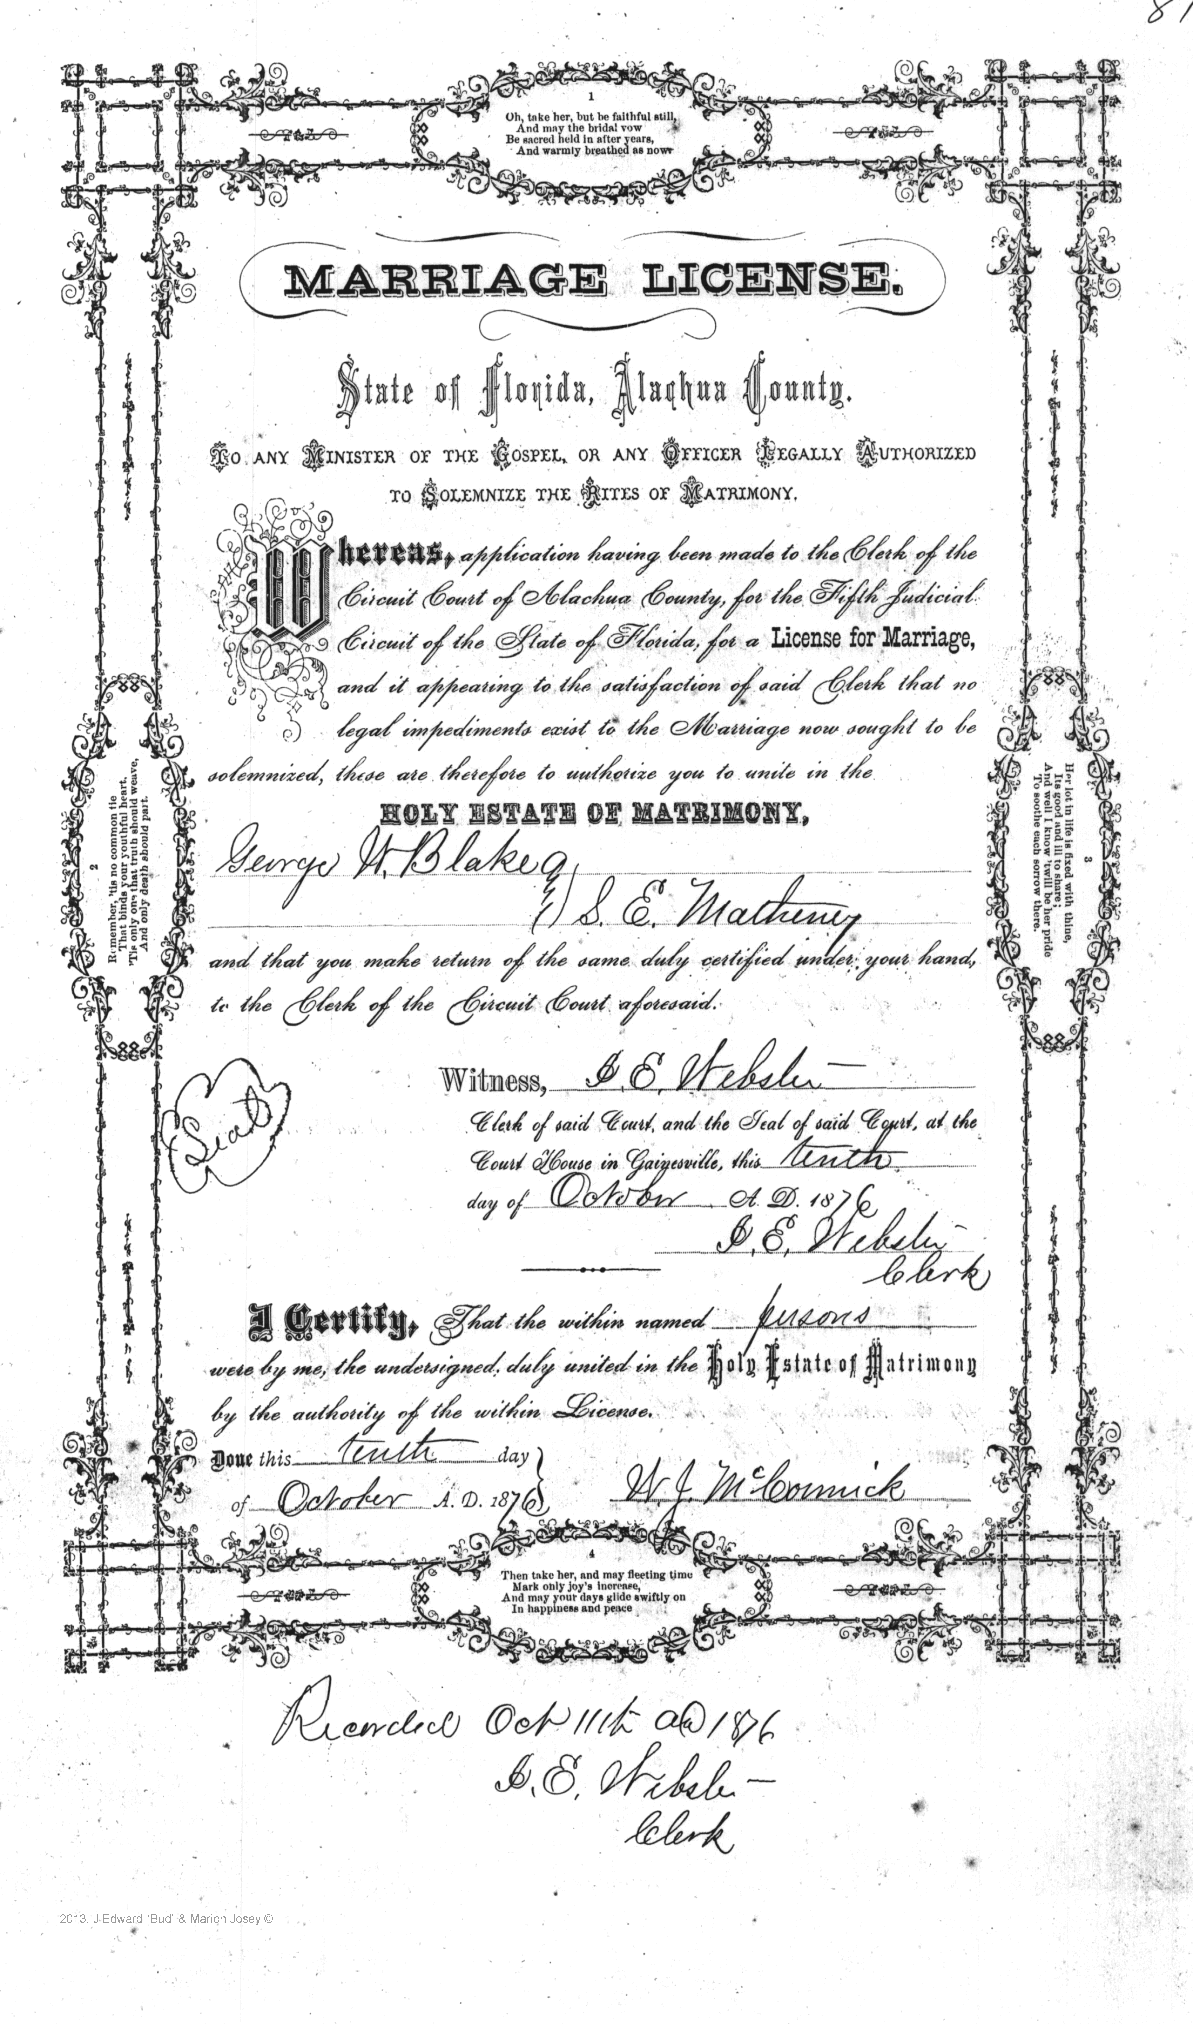 1
Oh, take her, but be faithful still,
And may the bridal vow
Be sacred held in after years,
And warmly breathed as now
MARRIAGE LICENSE.
State of Florida, Alachua County.
TO ANY MINISTER OF THE GOSPEL, OR ANY OFFICER LEGALLY AUTHORIZED
TO SOLEMNIZE THE RITES OF MATRIMONY.
Whereas, application having been made to the Clerk of the
Circuit Court of Alachua County, for the Fifth Judicial
Circuit of the State of Florida, for a License for Marriage,
and it appearing to the satisfaction of said Clerk that no
legal impediments exist to the Marriage now sought to be
solemnized, these are therefore to authorize you to unite in the
HOLY ESTATE OF MATRIMONY,
George W. Blake
S. E. Matheney
and that you make return of the same duly certified under your hand,
to the Clerk of the Circuit Court aforesaid.
2
Remember, 'tis no common tie
That binds your youthful heart,
'Tis only one that truth should weave,
And only death should part.
3
Her lot in life is fixed with thine,
Its good and ill to share;
And well I know 'twill be her pride
To soothe each sorrow there.
Seal
Witness, E. Webster
Clerk of said Court, and the Seal of said Court, at the
Court House in Gainesville, this tenth
day of October A. D. 1876
E. Webster
Clerk
I Certify, That the within named persons
were by me, the undersigned, duly united in the Holy Estate of Matrimony
by the authority of the within License.
Done this tenth day
of October A. D. 1876
W. J. McCormick
4
Then take her, and may fleeting time
Mark only joy's increase,
And may your days glide swiftly on
In happiness and peace
Recorded Oct 11th AD 1876
E. Webster
Clerk
2013. J Edward 'Bud' & Marion Josey ©